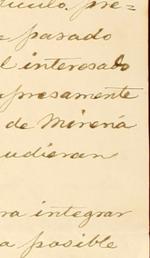 ículo. pre=
e pasado
l interesado
presamente
de Mirená
udieran
ra integrar
a posible